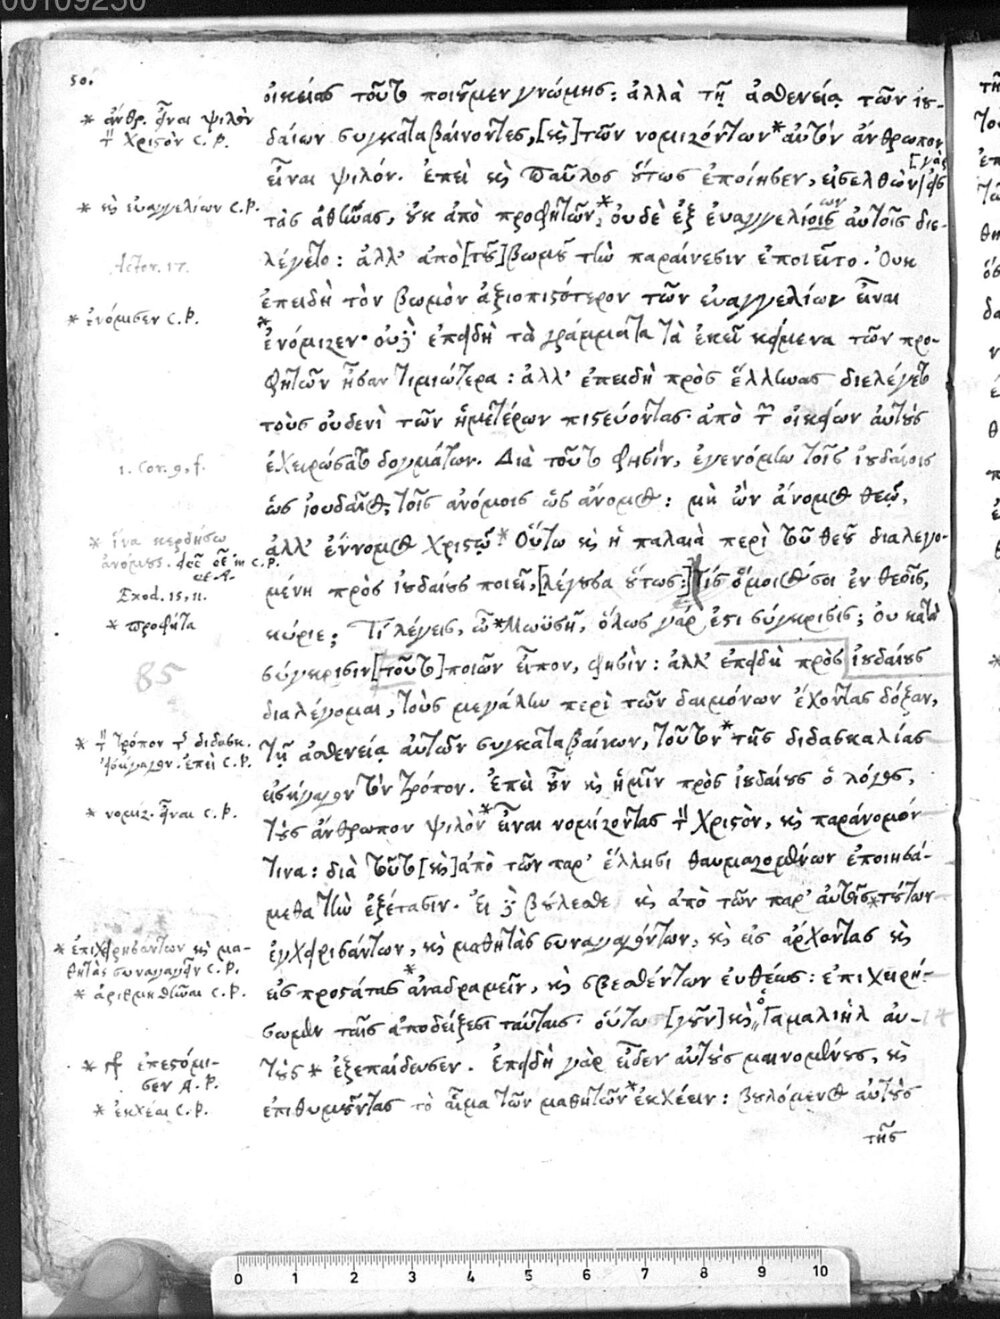 00109250
50.
οἰκείας τοῦτο ποιοῦμεν γνώμης: ἀλλὰ τῇ ἀσθενείᾳ τῶν ἰου-
δαίων συγκαταβαίνοντες, [καὶ] τῶν νομιζόντων * αὐτὸν ἄνθρωπον
εἶναι ψιλόν. ἐπεὶ καὶ Παῦλος οὕτως ἐποίησεν, εἰσελθὼν [γὰρ] εἰς
τὰς ἀθήνας, οὐκ ἀπὸ προφητῶν, * οὐδὲ ἐξ εὐαγγελίοις ων αὐτοῖς διε-
λέγετο: ἀλλ' ἀπὸ [τοῦ] βωμοῦ τὴν παραίνεσιν ἐποιεῖτο. Οὐκ
ἐπειδὴ τὸν βωμὸν ἀξιοπιστότερον τῶν εὐαγγελίων εἶναι
* ἐνόμιζεν· οὐδὲ ἐπειδὴ τὰ γράμματα τὰ ἐκεῖ κείμενα τῶν προ-
φητῶν ἦσαν τιμιώτερα: ἀλλ' ἐπειδὴ πρὸς ἕλληνας διελέγετο
τοὺς οὐδενὶ τῶν ἡμετέρων πιστεύοντας· ἀπὸ τῶν οἰκείων αὐτοὺς
ἐχειρώσατο δογμάτων. Διὰ τοῦτο φησὶν, ἐγενόμην τοῖς ἰουδαίοις
ὡς ἰουδαῖος, τοῖς ἀνόμοις ὡς ἄνομος: μὴ ὢν ἄνομος θεῷ,
ἀλλ' ἔννομος Χριστῷ. * Οὕτω καὶ ἡ παλαιὰ περὶ τοῦ θεοῦ διαλεγο-
μένη πρὸς ἰουδαίους ποιεῖ, [λέγουσα οὕτως:] Τίς ὅμοιός σοι ἐν θεοῖς,
κύριε; Τί λέγεις, ὦ * Μωϋσῆ, ὅλως γάρ ἐστι σύγκρισις; Οὐ κατὰ
σύγκρισιν [τοῦτο] ποιῶν εἶπον, φησὶν: ἀλλ' ἐπειδὴ πρὸς ἰουδαίους
διαλέγομαι, τοὺς μεγάλην περὶ τῶν δαιμόνων ἔχοντας δόξαν,
τῇ ἀσθενείᾳ αὐτῶν συγκαταβαίνων, τοῦτον * τῆς διδασκαλίας
εἰσήγαγον τὸν τρόπον. Ἐπεὶ οὖν καὶ ἡμῖν πρὸς ἰουδαίους ὁ λόγος,
τοὺς ἄνθρωπον ψιλὸν * εἶναι νομίζοντας τὸν Χριστὸν, καὶ παράνομόν
τινα: διὰ τοῦτο [καὶ] ἀπὸ τῶν παρ' ἕλλησι θαυμαζομένων ἐποιησά-
μεθα τὴν ἐξέτασιν. Εἰ δὲ βούλεσθε καὶ ἀπὸ τῶν παρ' αὐτοῖς * τούτων
ἐγχειρισάντων, καὶ μαθητὰς συναγαγόντων, καὶ εἰς ἄρχοντας καὶ
εἰς προστάτας * ἀναδραμεῖν, καὶ σβεσθέντων εὐθέως: ἐπιχειρή-
σωμεν ταῖς ἀποδείξεσι ταύταις. οὕτω [γοῦν] καὶ ὁ Γαμαλιὴλ αὐ-
τοὺς * ἐξεπαίδευσεν. Ἐπειδὴ γὰρ εἶδεν αὐτοὺς μαινομένους, καὶ
ἐπιθυμοῦντας τὸ αἷμα τῶν μαθητῶν * ἐκχέειν: βουλόμενος αὐτοὺς
τῆς
* ἄνθρ. εἶναι ψιλὸν
τὸν Χριστὸν C.P.
* καὶ εὐαγγελίων C.P.
Actor. 17.
* ἐνόμισεν C.P.
1. Cor. 9, f.
* ἵνα κερδήσω
ἀνόμους.
Exod. 15, 11.
* προφῆτα
85
* τὸν τρόπον τῆς διδασκ.
εἰσήγαγον. ἐπεὶ C.P.
* νομίζ. εἶναι C.P.
* ἐπιχειρησάντων καὶ μα-
θητὰς συναγαγεῖν C.P.
* ἀριθμηθῆναι C.P.
* ἐπεστόμι-
σεν A.P.
* ἐκχέαι C.P.
0 1 2 3 4 5 6 7 8 9 10